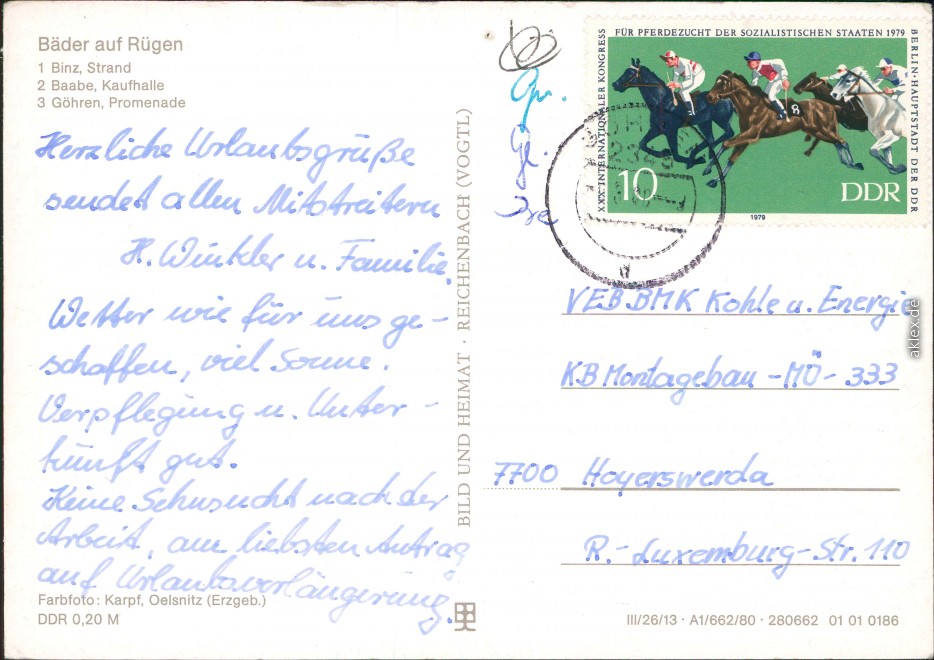 Bäder auf Rügen
1 Binz, Strand
2 Baabe, Kaufhalle
3 Göhren, Promenade
Herzliche Urlaubsgrüße
sendet allen Mitstreitern
H. Winkler u. Familie.
Wetter wie für uns ge-
schaffen, viel Sonne.
Verpflegung u. Unter-
kunft gut.
Keine Sehnsucht nach der
Arbeit, am liebsten Antrag
auf Urlaubsverlängerung.
Farbfoto: Karpf, Oelsnitz (Erzgeb.)
DDR 0,20 M
BILD UND HEIMAT · REICHENBACH (VOGTL)
XXX. INTERNATIONALER KONGRESS
FÜR PFERDEZUCHT DER SOZIALISTISCHEN STAATEN 1979
BERLIN-HAUPTSTADT DER DDR
8
10
DDR
1979
VEB BMK Kohle u. Energie
KB Montagebau -MÖ- 333
7700 Hoyerswerda
R.-Luxemburg-Str. 110
III/26/13 · A1/662/80 · 280662 01 01 0186
aklex.de